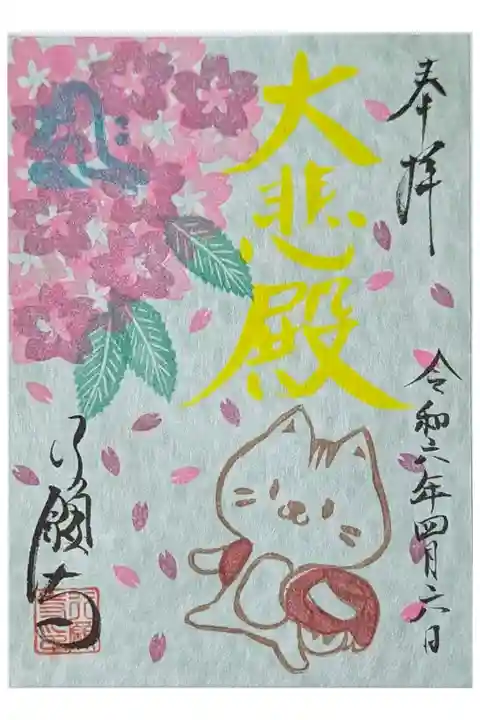 奉拝
令和六年四月六日
大悲殿
行願寺